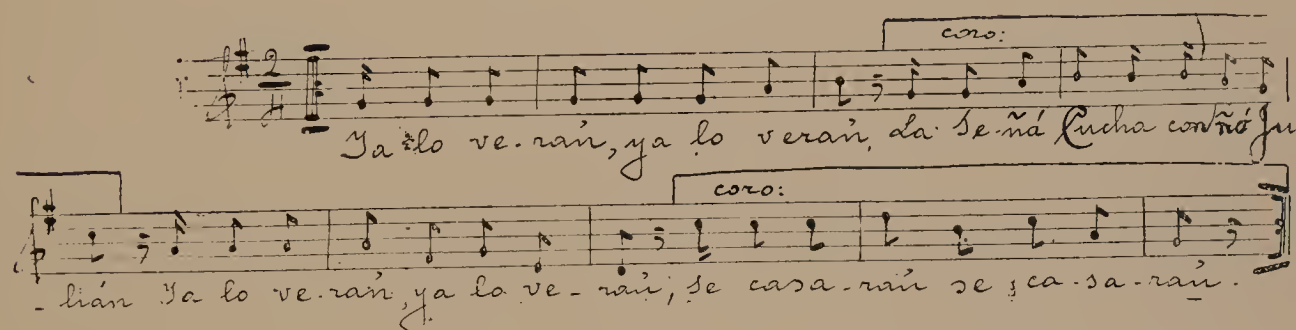 coro:
2
4
Ya lo ve-rán, ya lo verán, La Se-ñá Cucha con ñó Ju
coro:
-lián Ya lo ve-rán, ya lo ve-rán, se casa-rán se ca-sa-rán.